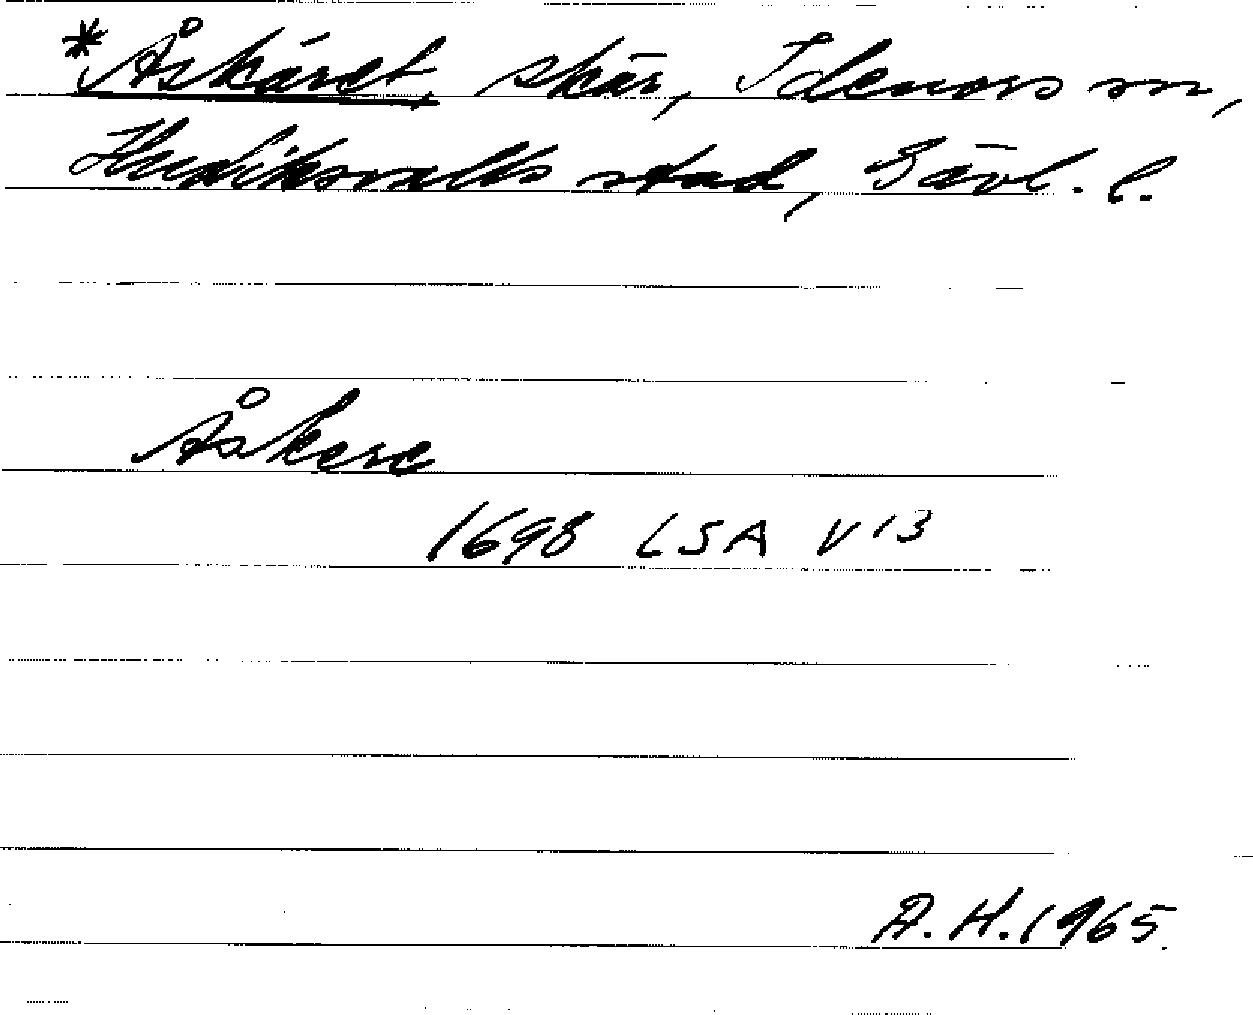 *Åskäret, skär, Idenors sn,
Hudiksvalls stad, Gävl. l.
Åskere
1698 LSA V 13
A. H. 1965.